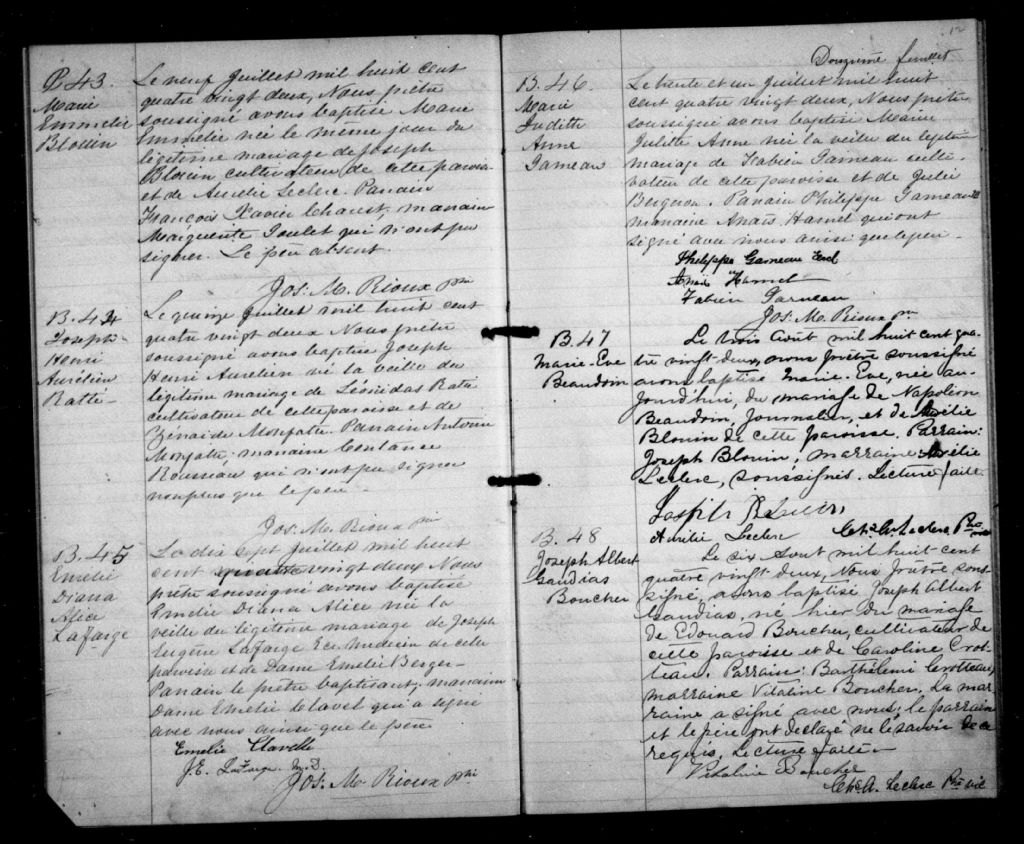 B.43.
Marie
Emmelie
Blouin
Le neuf Juillet mil huit cent
quatre vingt deux, Nous prêtre
soussigné avons baptisé Marie
Emmelie née le même jour du
légitime mariage de Joseph
Blouin cultivateur de cette paroisse
et de Aurélie Leclerc. Parrain
François Xavier Charest, marraine
Marguerite Goulet qui n'ont pu
signer. Le père absent.
Jos. M. Rioux ptre
B.44
Joseph
Henri
Aurélien
Ratté
Le quinze Juillet mil huit cent
quatre vingt deux Nous prêtre
soussigné avons baptisé Joseph
Henri Aurelien né la veille du
légitime mariage de Léonidas Ratté
cultivateur de cette paroisse et de
Zénaide Monfatte. Parrain Antoine
Monfatte; marraine Constance
Rousseau qui n'ont pu signer
non plus que le père.
Jos. M. Rioux ptre
B.45
Emelie
Diana
Alice
LaFarge
Le dix sept Juillet mil huit
cent quatre vingt deux Nous
prêtre soussigné avons baptisé
Emelie Diana Alice née la
veille du légitime mariage de Joseph
Eugène LaFarge Ecr. Médecin de cette
paroisse et de Dame Emelie Berger.
Parrain le prêtre baptisant; marraine
Dame Emelie Clavel qui a signé
avec nous ainsi que le père.
Emelie Clavelle
J.E. LaFarge M.D.
Jos. M. Rioux ptre
Douzième feuillet
B.46.
Marie
Judith
Anne
Garneau
Le trente et un Juillet mil huit
cent quatre vingt deux, Nous prêtre
soussigné avons baptisé Marie
Anne née la veille du légitime
mariage de Fabien Garneau culti-
vateur de cette paroisse et de Julie
Bergeron. Parrain Philippe Garneau
marraine Anaïs Hamel qui ont
signé avec nous ainsi que le père.
Philippe Garneau
Anaïs Hamel
Fabien Garneau
Jos. M. Rioux ptre
B.47
Marie-Eve
Beaudoin
Le trois Août mil huit cent qua-
tre vingt deux, nous prêtre soussigné
avons baptisé Marie-Eve, née au-
jourd'hui, du mariage de Napoléon
Beaudoin, Journalier, et de Amélie
Blouin de cette paroisse. Parrain:
Joseph Blouin, marraine Aurélie
Leclerc, soussignés. Lecture faite.
Joseph Blouin
Aurélie Leclerc
Chs. A. Leclerc Ptre
B.48
Joseph Albert
Gaudias
Boucher
Le six Aout mil huit cent
quatre vingt deux, Nous prêtre sous-
signé, avons baptisé Joseph Albert
Gaudias, né hier du mariage
de Edouard Boucher, cultivateur de
cette paroisse et de Caroline Crot-
teau. Parrain: Barthélemi Crotteau,
marraine Vitaline Boucher. La mar-
raine a signé avec nous; le parrain
et le père ont déclaré ne le savoir de ce
requis, Lecture faite
Vitaline Boucher
Chs. A. Leclerc Ptre vic